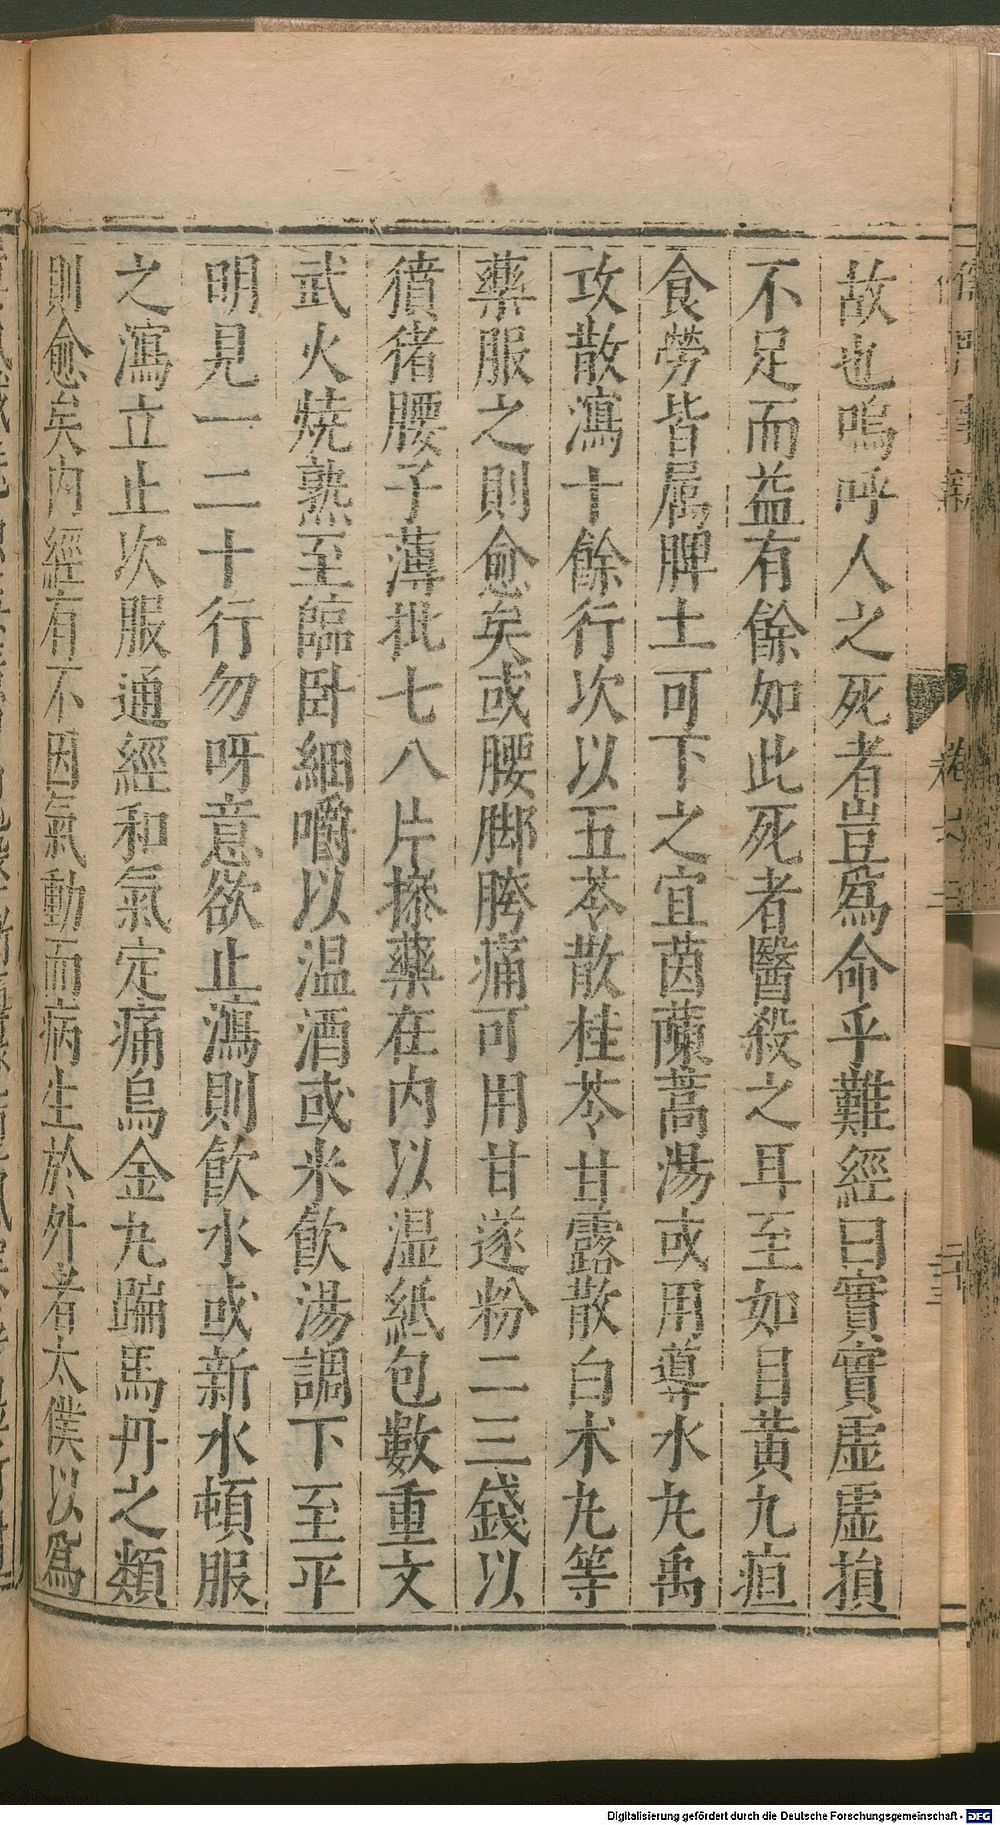 故也嗚呼人之死者豈爲命乎難經曰實實虛虛損
不足而益有餘如此死者醫殺之耳至如目黃九疸
食勞皆属脾土可下之宜茵蔯蒿湯或用導水丸禹
攻散瀉十餘行次以五苓散桂苓甘露散白朮丸等
藥服之則愈矣或腰脚胯痛可用甘遂粉二三錢以
獖猪腰子薄批七八片摻藥在内以湿紙包數重文
武火燒熟至臨卧細嚼以温酒或米飲湯調下至平
明見一二十行勿呀意欲止瀉則飲水或新水頓服
之瀉立止次服通經和氣定痛烏金丸踰馬丹之類
則愈矣内經有不因氣動而病生於外者太僕以爲
卷六
二十三
Digitalisierung gefördert durch die Deutsche Forschungsgemeinschaft - DFG